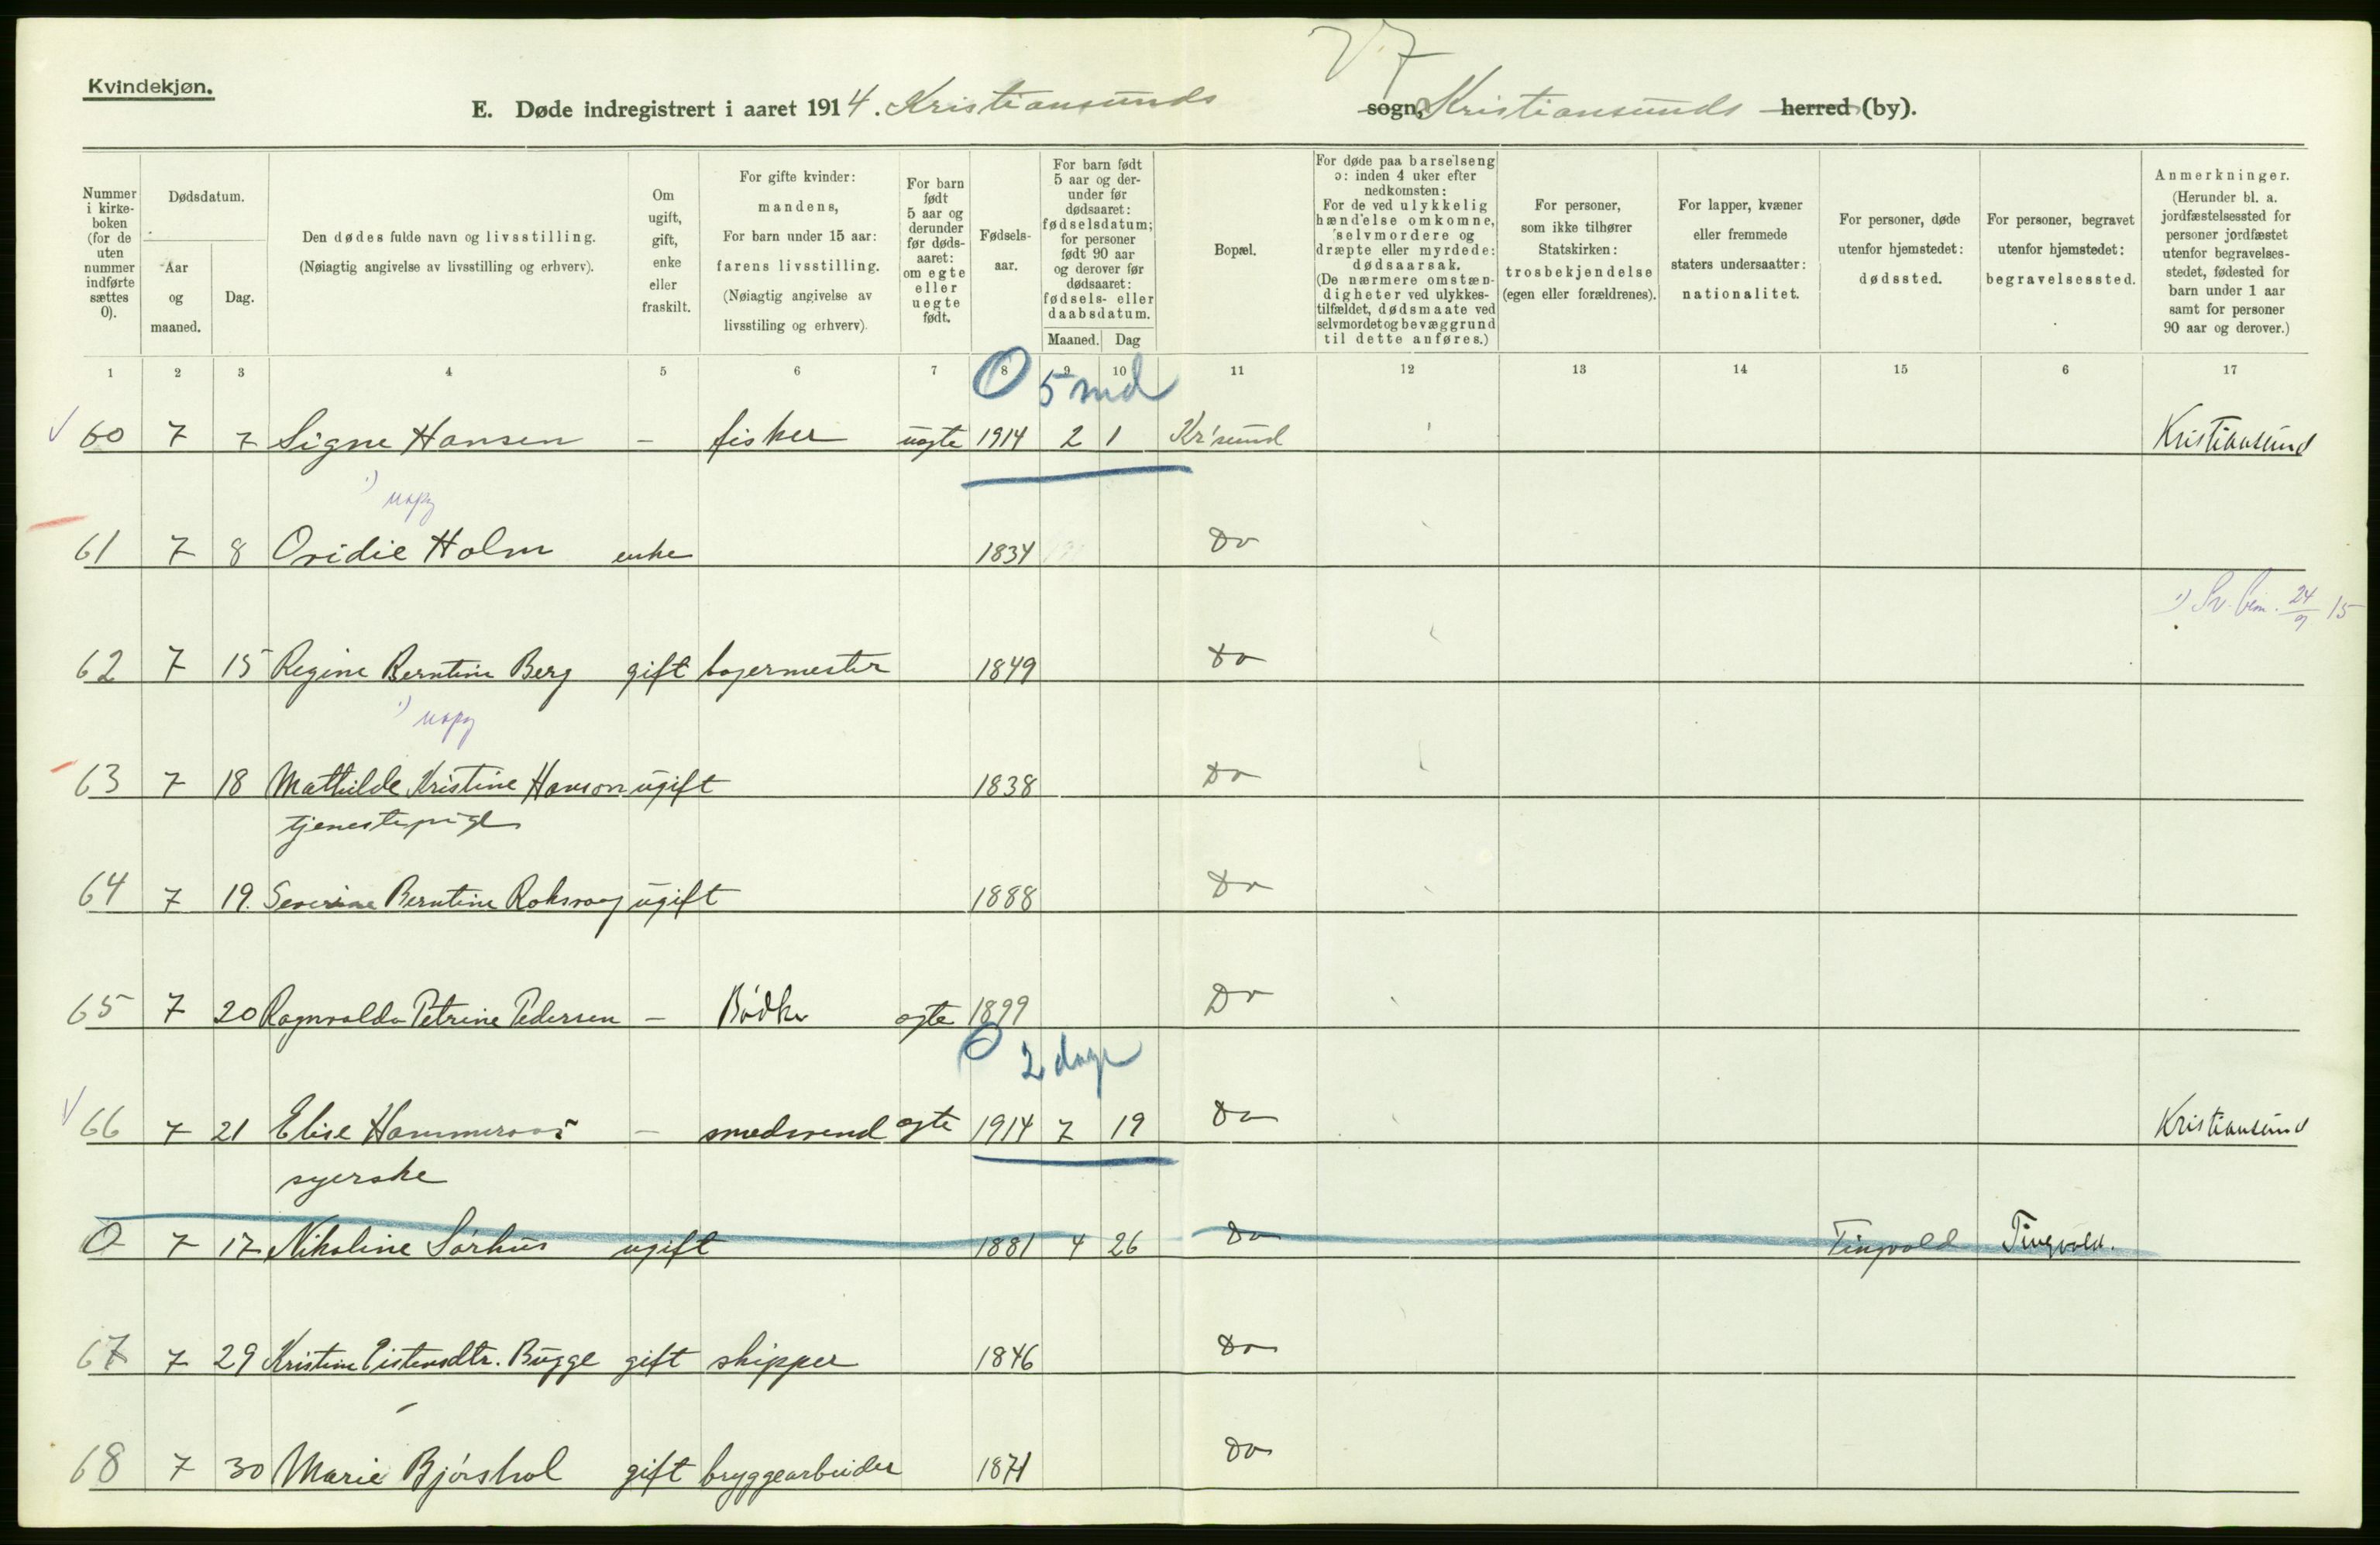 V. 7
Kvindekjøn.
E. Døde indregistrert i aaret 1914. Kristiansunds sogn, Kristiansunds herred (by).
Nummer i kirke- boken (for de uten nummer indførte sættes 0).
Dødsdatum.
Aar og maaned.
Dag.
Den dødes fulde navn og livsstilling.
(Nøiagtig angivelse av livsstilling og erhverv).
Om ugift, gift, enke eller fraskilt.
For gifte kvinder: mandens,
For barn under 15 aar: farens livsstilling.
(Nøiagtig angivelse av livsstiling og erhverv).
For barn født 5 aar og derunder før døds- aaret: om egte eller uegte født.
Fødsels- aar.
For barn født 5 aar og der- under før dødsaaret: fødselsdatum; for personer født 90 aar og derover før dødsaaret: fødsels- eller daabsdatum.
Maaned. Dag
Bopæl.
For døde paa barselseng ɔ: inden 4 uker efter nedkomsten:
For de ved ulykkelig hændelse omkomne, selvmordere og dræpte eller myrdede: dødsaarsak.
(De nærmere omstæn- digheter ved ulykkes- tilfældet, dødsmaate ved selvmordet og bevæggrund til dette anføres.)
For personer, som ikke tilhører Statskirken: trosbekjendelse (egen eller forældrenes).
For lapper, kvæner eller fremmede staters undersaatter: nationalitet.
For personer, døde utenfor hjemstedet: dødssted.
For personer, begravet utenfor hjemstedet: begravelsessted.
Anmerkninger.
(Herunder bl. a. jordfæstelsessted for personer jordfæstet utenfor begravelses- stedet, fødested for barn under 1 aar samt for personer 90 aar og derover.)
1 2 3 4 5 6 7 8 9 10 11 12 13 14 15 6 17
0 5 md
60 7 7 Signe Hansen - fisker uegte 1914 2 1 Kr'sund Kristiansund
1)
61 7 8 Ovidie Holm enke 1834 Do
1) 24/9 15
62 7 15 Regine Berntine Berg gift bøjermester 1849 Do
1)
63 7 18 Mathilde Kristine Hanson ugift 1838 Do
tjenestepige
64 7 19. Severine Berntine Roksvaag ugift 1888 Do
65 7 20 Ragnvalda Petrine Pedersen - Bødker egte 1899 Do
0 2 dage
66 7 21 Elise Hammeraas - smedsvend egte 1914 7 19 Do Kristiansund
syerske
0 7 17 Nikoline Sørhus ugift 1881 4 26 Do Tingvold Tingvold.
67 7 29 Kristine Eistensdtr. Bugge gift skipper 1846 Do
68 7 30 Marie Bjørshol gift bryggearbeider 1871 Do